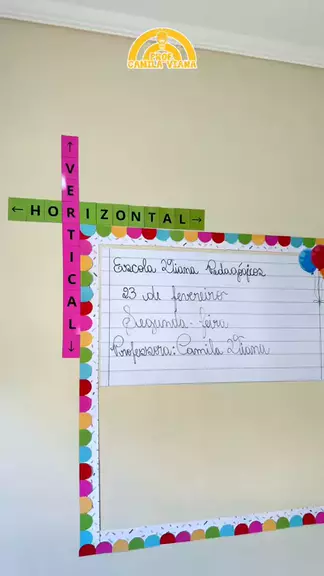 PROF
CAMILA VIANA
↑ VERTICAL ↓
← HORIZONTAL →
Escola Viana Pedagógios
23 de fevereiro
Segunda-feira
Professora: Camila Viana